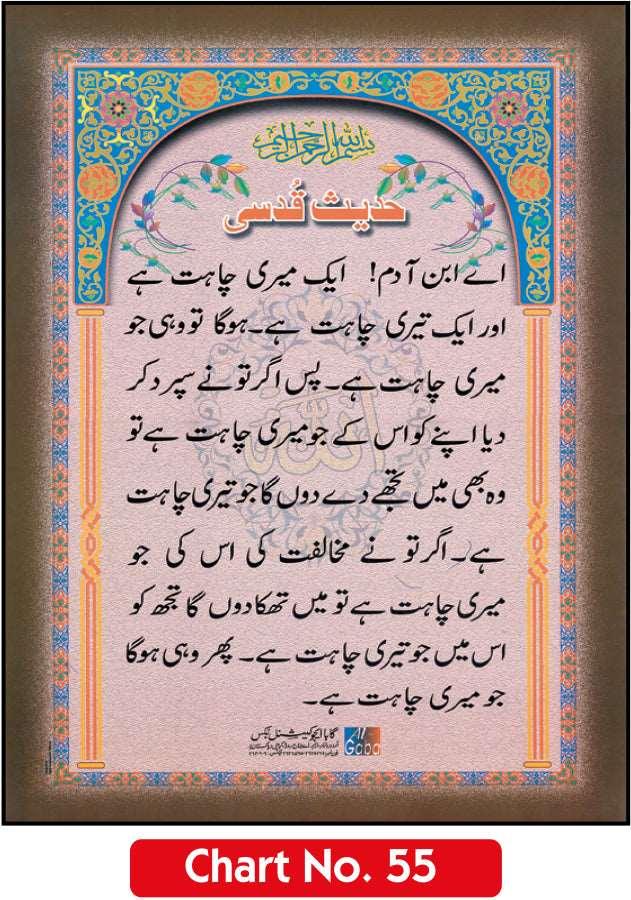 بسم الله الرحمن الرحیم
حدیث قُدسی
اے ابن آدم! ایک میری چاہت ہے
اور ایک تیری چاہت ہے۔ ہوگا تو وہی جو
میری چاہت ہے۔ پس اگر تو نے سپرد کر
دیا اپنے کو اس کے جو میری چاہت ہے تو
وہ بھی میں تجھے دے دوں گا جو تیری چاہت
ہے۔ اگر تو نے مخالفت کی اس کی جو
میری چاہت ہے تو میں تھکا دوں گا تجھ کو
اس میں جو تیری چاہت ہے۔ پھر وہی ہوگا
جو میری چاہت ہے۔
الله
گابا ایجوکیشنل بکس
Al Gaba
Chart No. 55